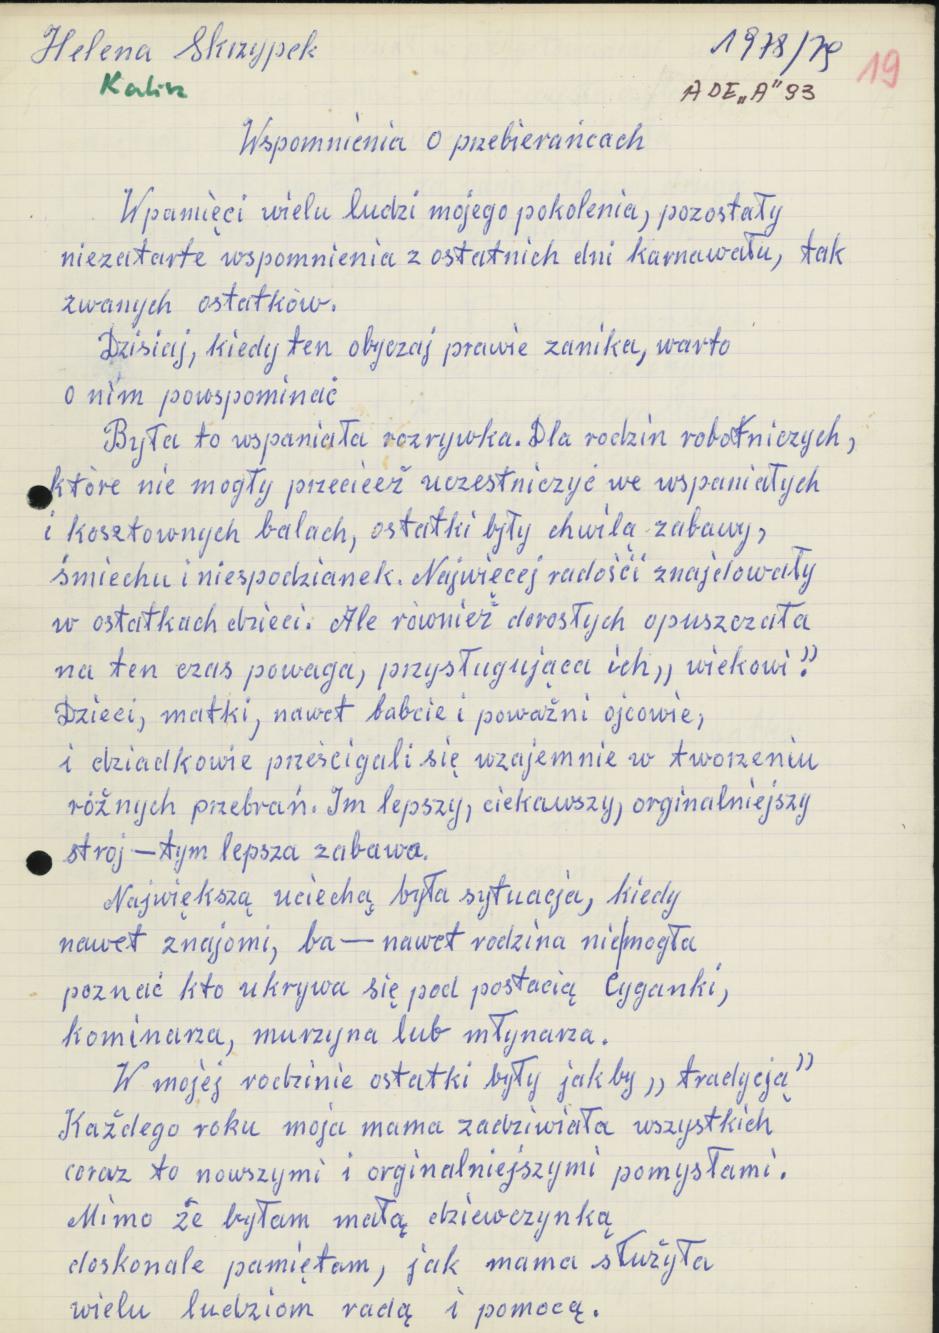 Helena Skrzypek
1978/79
19
Kalisz
ADE„A"93
Wspomnienia o przebierańcach
W pamięci wielu ludzi mojego pokolenia, pozostały
niezatarte wspomnienia z ostatnich dni karnawału, tak
zwanych ostatków.
Dzisiaj, kiedy ten obyczaj prawie zanika, warto
o nim powspominać
Była to wspaniała rozrywka. Dla rodzin robotniczych,
które nie mogły przecież uczestniczyć we wspaniałych
i kosztownych balach, ostatki były chwilą zabawy,
śmiechu i niespodzianek. Najwięcej radości znajdowały
w ostatkach dzieci. Ale również dorosłych opuszczała
na ten czas powaga, przysługująca ich „ wiekowi".
Dzieci, matki, nawet babcie i poważni ojcowie,
i dziadkowie prześcigali się wzajemnie w tworzeniu
różnych przebrań. Im lepszy, ciekawszy, orginalniejszy
strój — tym lepsza zabawa.
Największą uciechą była sytuacja, kiedy
nawet znajomi, ba — nawet rodzina nie|mogła
poznać kto ukrywa się pod postacią Cyganki,
kominarza, murzyna lub młynarza.
W mojej rodzinie ostatki były jakby „ tradycją"
Każdego roku moja mama zadziwiała wszystkich
coraz to nowszymi i orginalniejszymi pomysłami.
Mimo że byłam małą dziewczynką
doskonale pamiętam, jak mama służyła
wielu ludziom radą i pomocą.